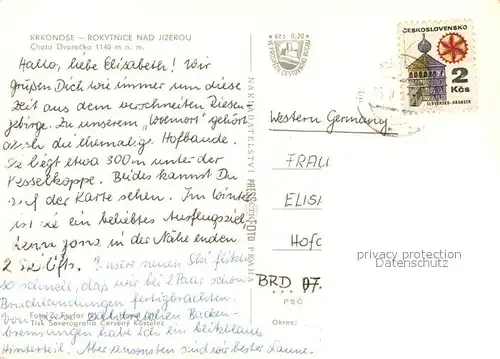 KRKONOŠE — ROKYTNICE NAD JIZEROU
Chata Dvoračka 1140 m n. m.
Hallo, liebe Elisabeth! Wir
grüßen Dich wie immer um diese
Zeit aus dem verschneiten Riesen-
gebirge. Zu unserem „Wohnort" gehört
auch die ehemalige Hofbaude.
Sie liegt etwa 300 m unter der
Kesselkoppe. Beides kannst Du
auf der Karte sehen. Im Winter
ist sie ein beliebtes Ausflugsziel,
denn ganz in der Nähe enden
2 Skilifts. Unsere neuen Ski flitzen
so schnell, daß wir bei 2 Paar schon
Bruchlandungen fertigbrachten.
Von
bremsungen habe ich ein blitzblaues
Hinterteil. Aber ansonsten sind wir bester Laune.
Tisk Severografia Červený Kostelec
NAKLADATELSTVÍ PRESSFOTO PRAHA
Kčs 0,20
ČESKOSLOVENSKO
2
Kčs
SLOVENSKO-HRONSEK
Western Germany
FRAU
ELIS
Hofg
BRD 07.
PSČ
Okres:
privacy protection
Datenschutz